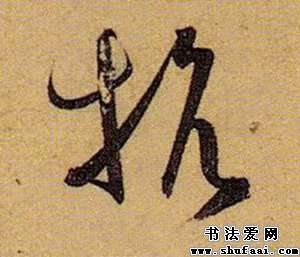 抗
书法爱网
www.shufaai.com